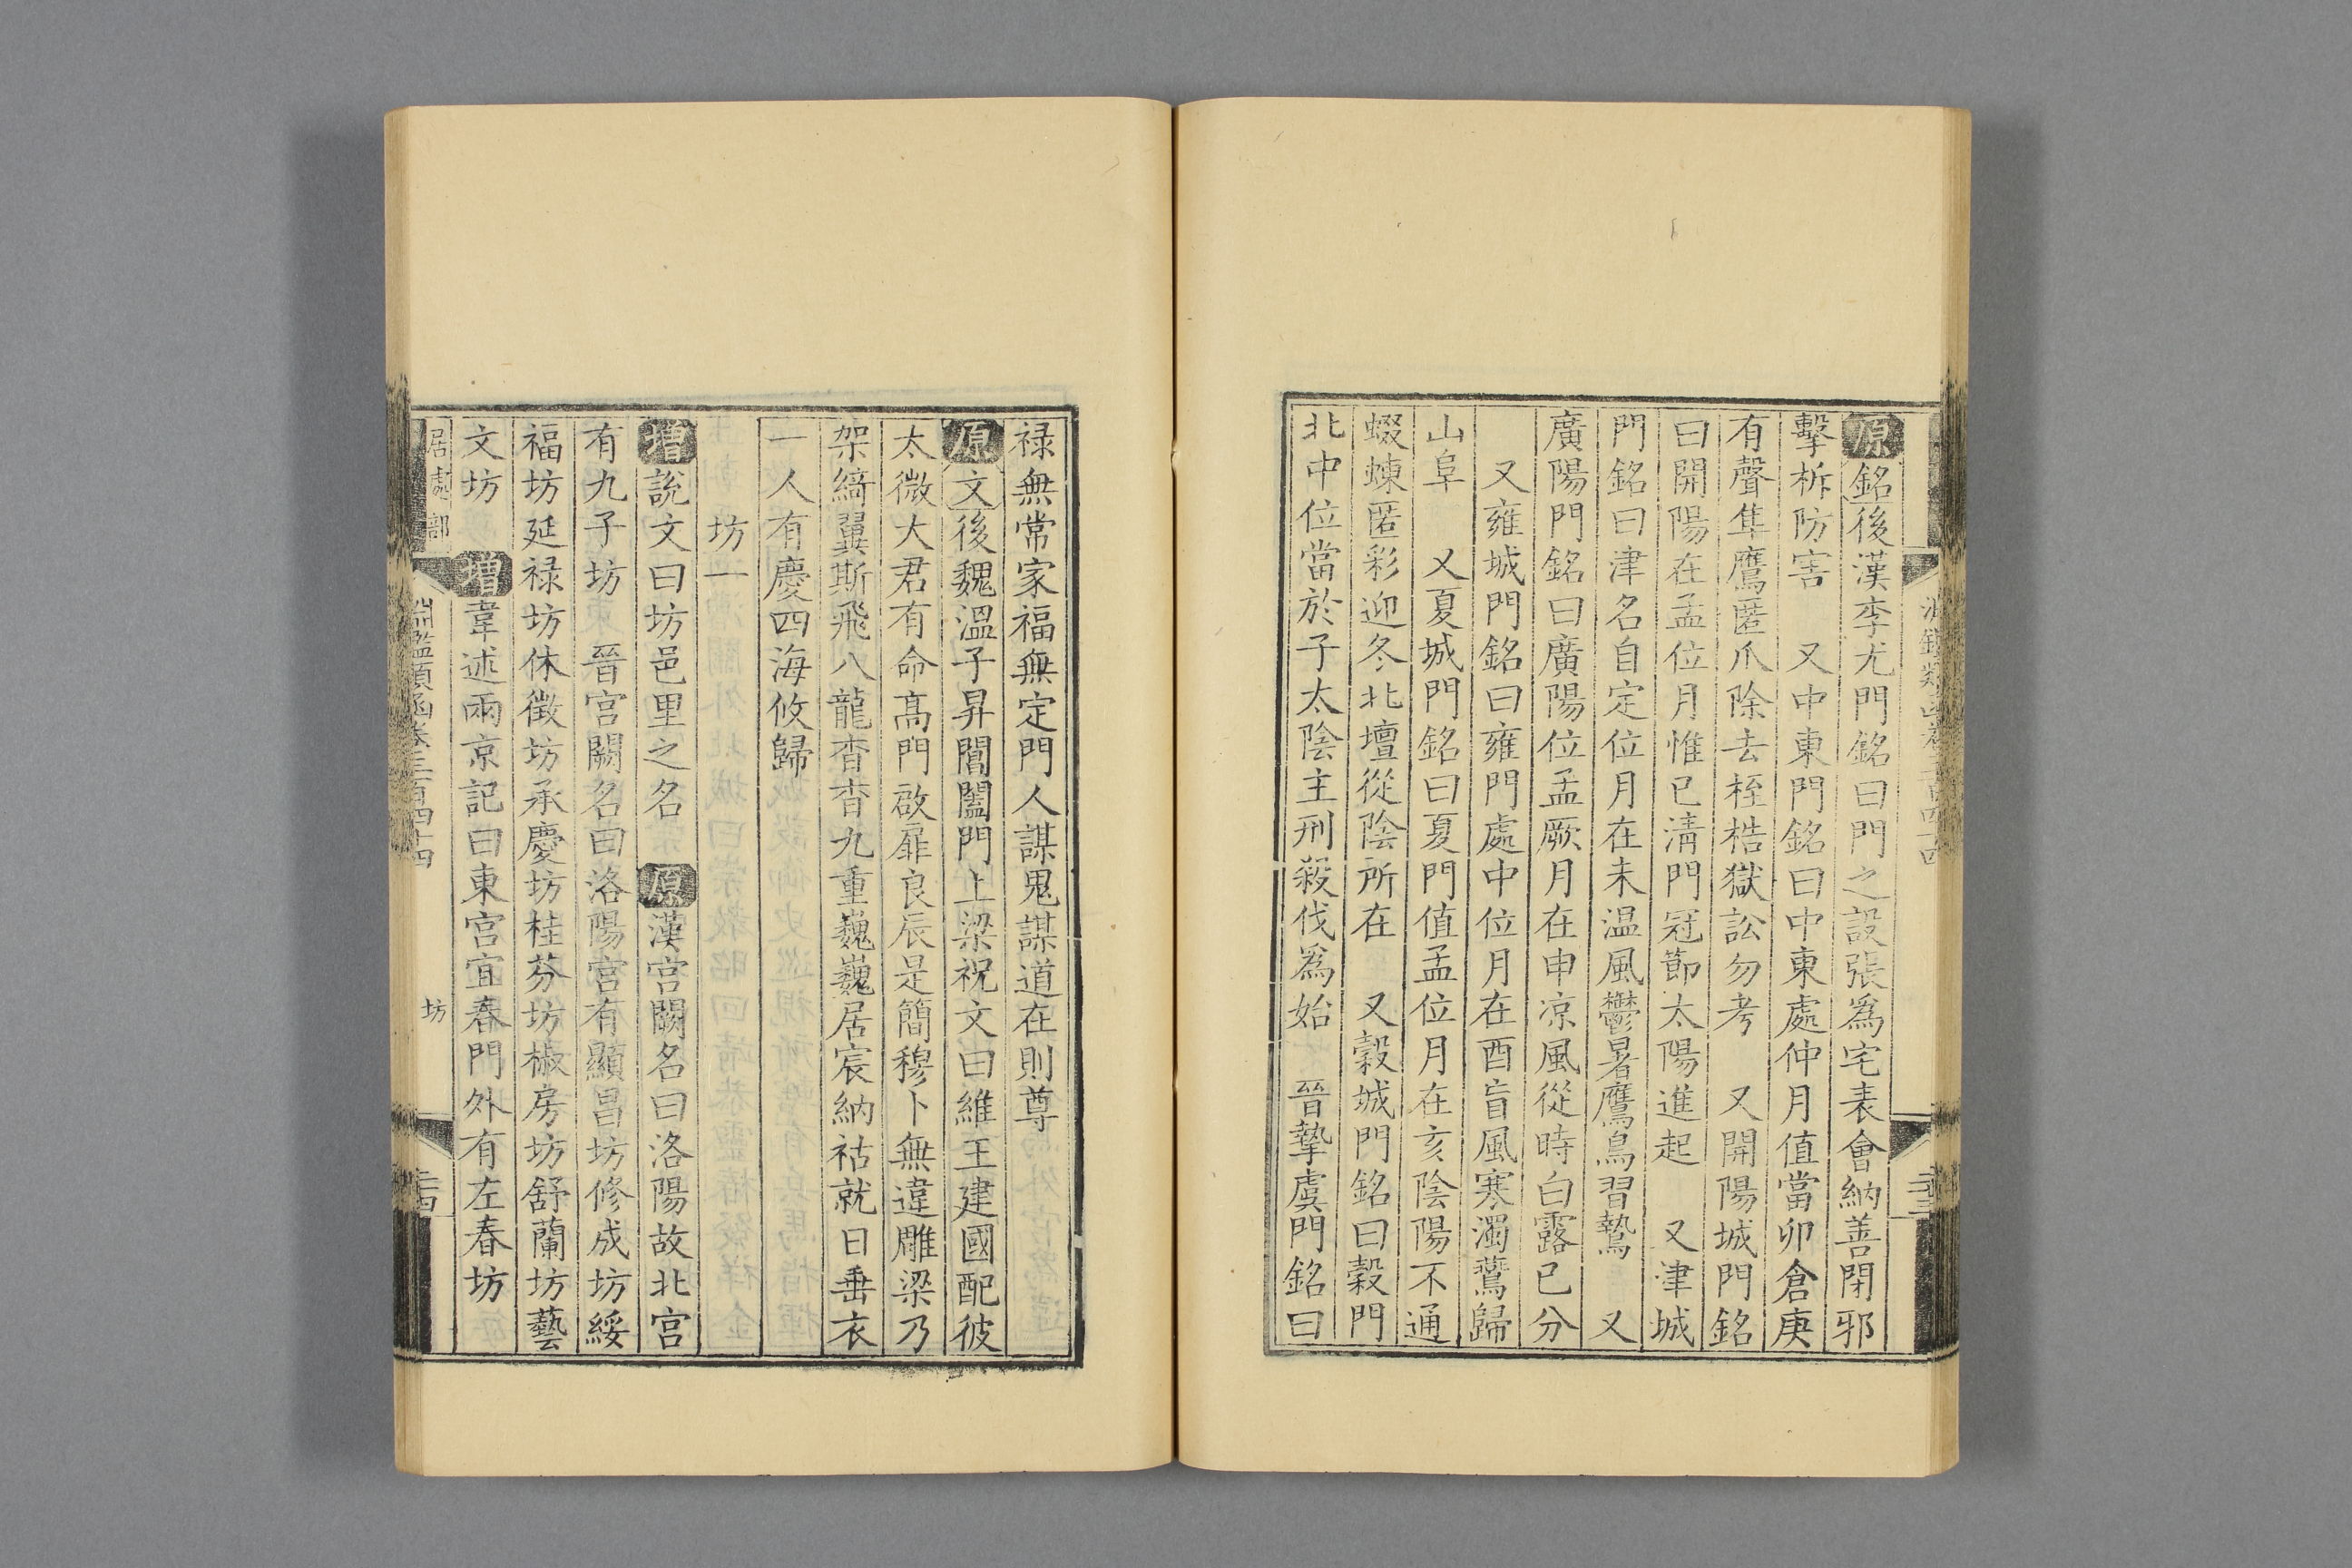 原銘後漢李尤門銘曰門之設張爲宅表會納善閉邪
擊柝防害　又中東門銘曰中東處仲月值當卯倉庚
有聲隼鷹匿爪除去桎梏獄訟勿考　又開陽城門銘
曰開陽在孟位月惟巳清門冠節太陽進起　又津城
門銘曰津名自定位月在未温風鬱暑鷹鳥習鷙　又
廣陽門銘曰廣陽位孟厥月在申涼風從時白露已分
又雍城門銘曰雍門處中位月在酉盲風寒濁鷰歸
山阜　又夏城門銘曰夏門值孟位月在亥陰陽不通
蝃蝀匿彩迎冬北壇從陰所在　又穀城門銘曰穀門
北中位當於子太陰主刑殺伐爲始　晉摯虞門銘曰
禄無常家福無定門人謀鬼謀道在則尊
原文後魏溫子昇閶闔門上梁祝文曰維王建國配彼
太微大君有命高門啟扉良辰是簡穆卜無違雕梁乃
架綺翼斯飛八龍杳杳九重巍巍居宸納祜就日垂衣
一人有慶四海攸歸
坊一
增說文曰坊邑里之名　原漢宮闕名曰洛陽故北宮
有九子坊　晉宮闕名曰洛陽宮有顯昌坊修成坊綏
福坊延禄坊休徵坊承慶坊桂芬坊椒房坊舒蘭坊藝
文坊　增韋述兩京記曰東宮宜春門外有左春坊
居處部
淵鑑類函卷三百四十四
坊